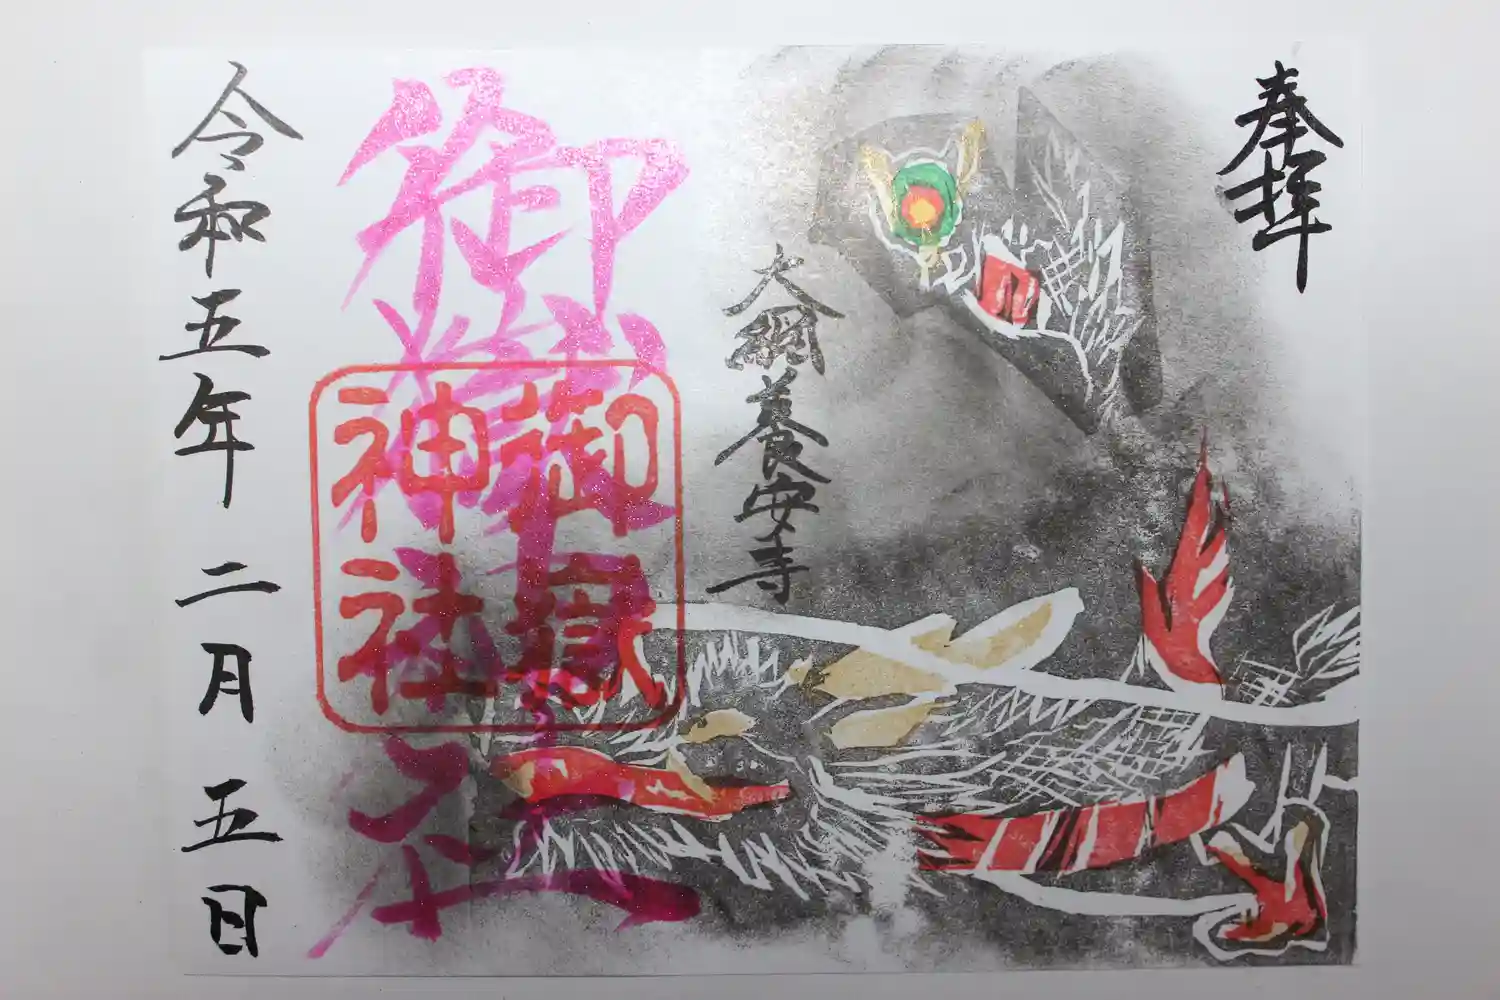 奉拝
大網養安寺
御嶽神社
御嶽
神社
令和五年 二月 五日